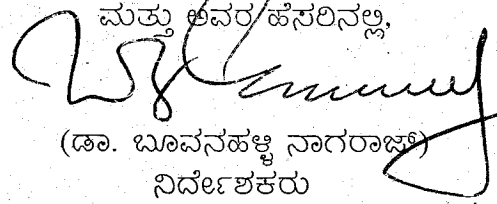 ಮತ್ತು ಅವರ ಹೆಸರಿನಲ್ಲಿ,
(ಡಾ. ಬೂವನಹಳ್ಳಿ ನಾಗರಾಜ್)
ನಿರ್ದೇಶಕರು